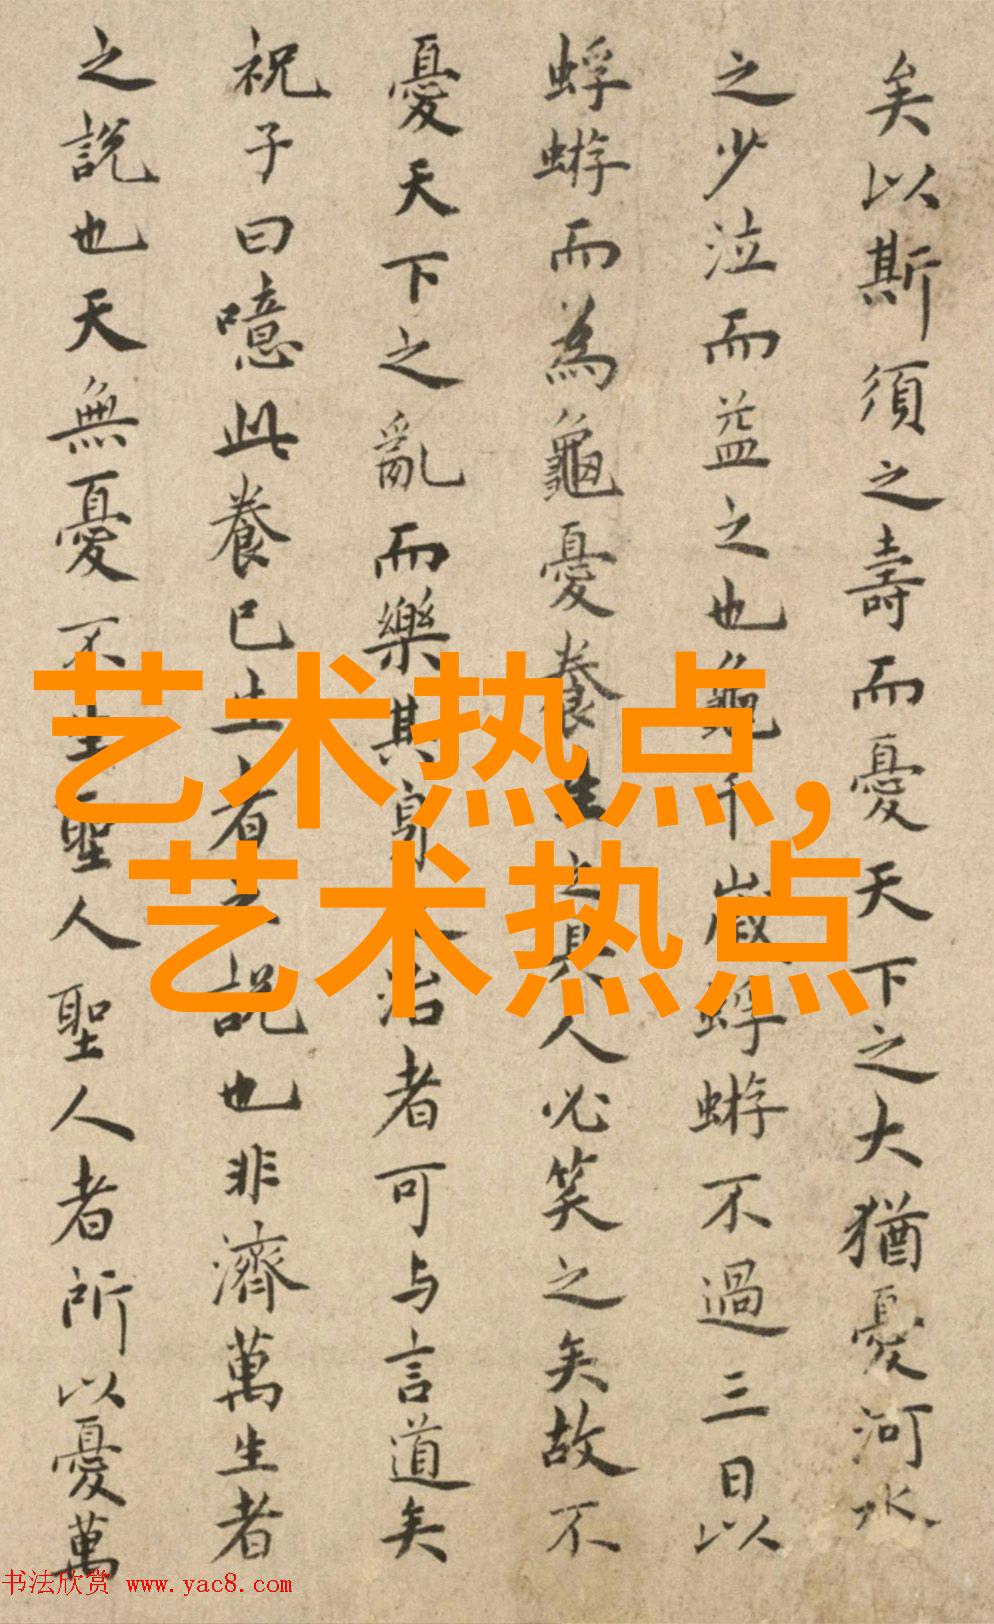 矣以斯須之壽而憂天下之大猶憂河水
之少泣而益之也龜千歲蜉蝣不過三日以
蜉蝣而為龜憂養生之具人必笑之矣故不
憂天下之亂而樂其身之治者可与言道矣
祝子曰噫此養已生者之説也非濟萬生者
之説也天無憂不生聖人聖人者所以憂萬
艺术热点,
艺术热点
书法欣赏 www.yac8.com